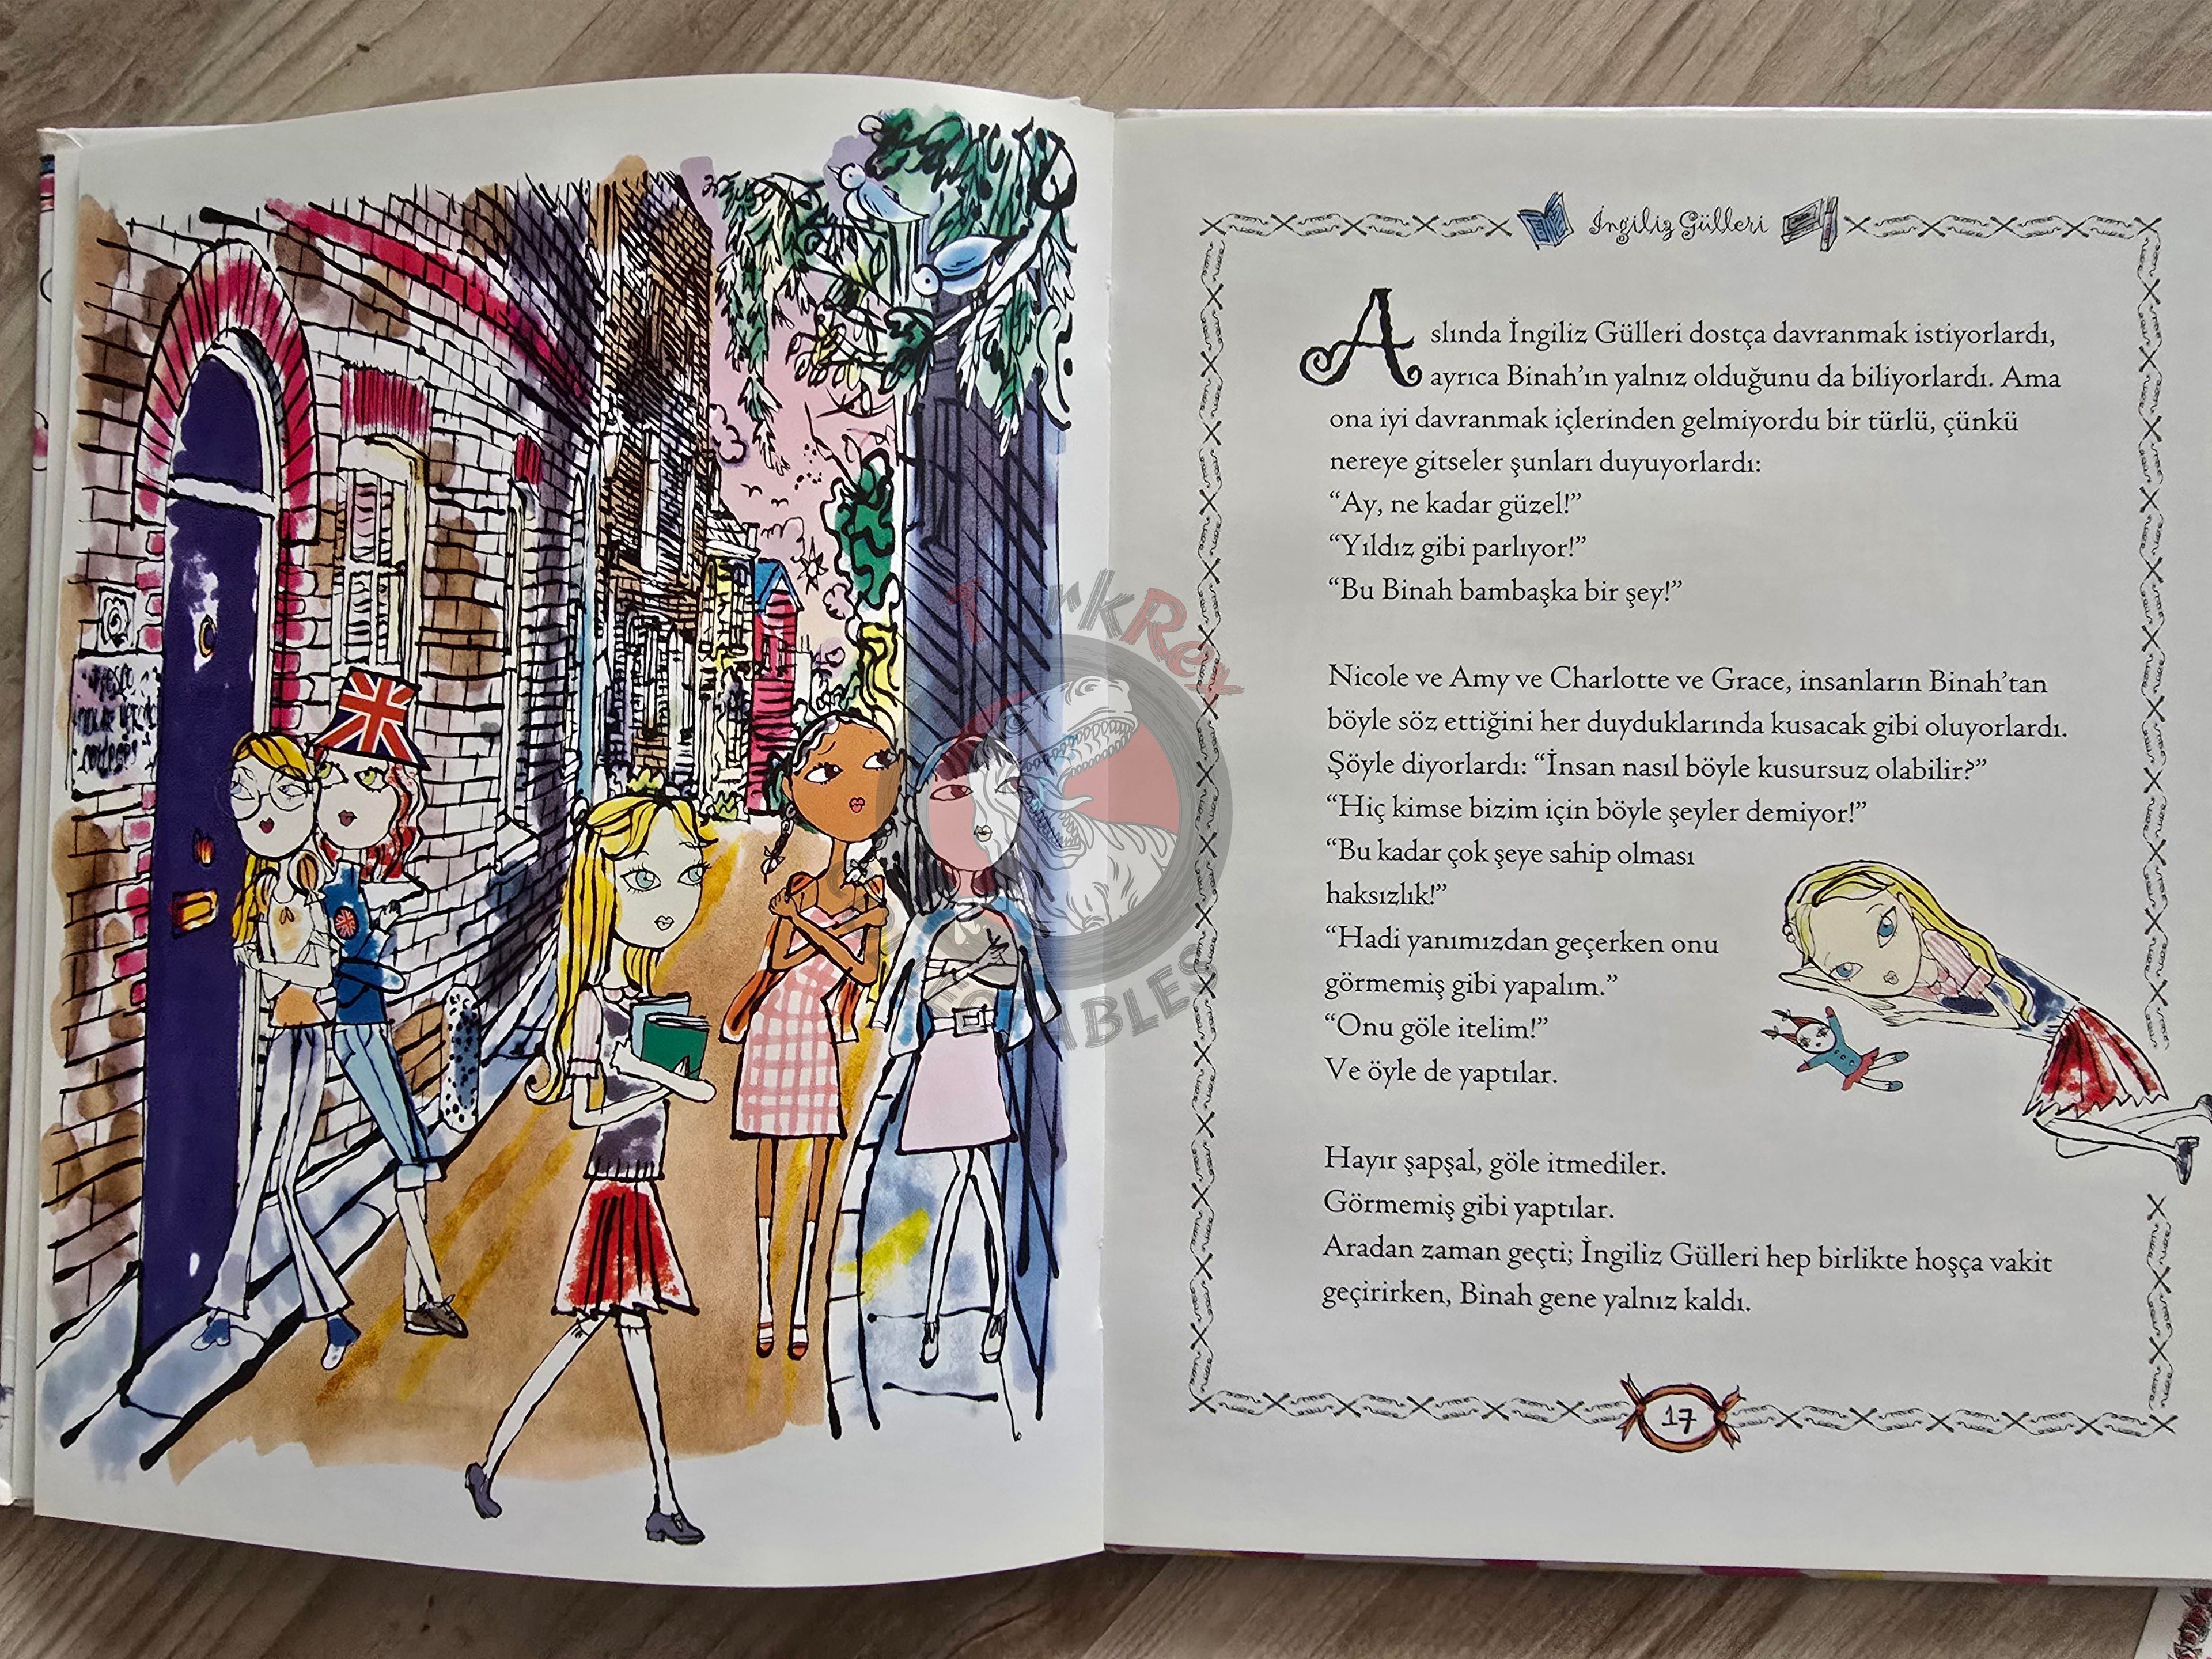 İngiliz Gülleri
Aslında İngiliz Gülleri dostça davranmak istiyorlardı,
ayrıca Binah’ın yalnız olduğunu da biliyorlardı. Ama
ona iyi davranmak içlerinden gelmiyordu bir türlü, çünkü
nereye gitseler şunları duyuyorlardı:
“Ay, ne kadar güzel!”
“Yıldız gibi parlıyor!”
“Bu Binah bambaşka bir şey!”
Nicole ve Amy ve Charlotte ve Grace, insanların Binah’tan
böyle söz ettiğini her duyduklarında kusacak gibi oluyorlardı.
Şöyle diyorlardı: “İnsan nasıl böyle kusursuz olabilir?”
“Hiç kimse bizim için böyle şeyler demiyor!”
“Bu kadar çok şeye sahip olması
haksızlık!”
“Hadi yanımızdan geçerken onu
görmemiş gibi yapalım.”
“Onu göle itelim!”
Ve öyle de yaptılar.
Hayır şapşal, göle itmediler.
Görmemiş gibi yaptılar.
Aradan zaman geçti; İngiliz Gülleri hep birlikte hoşça vakit
geçirirken, Binah gene yalnız kaldı.
17